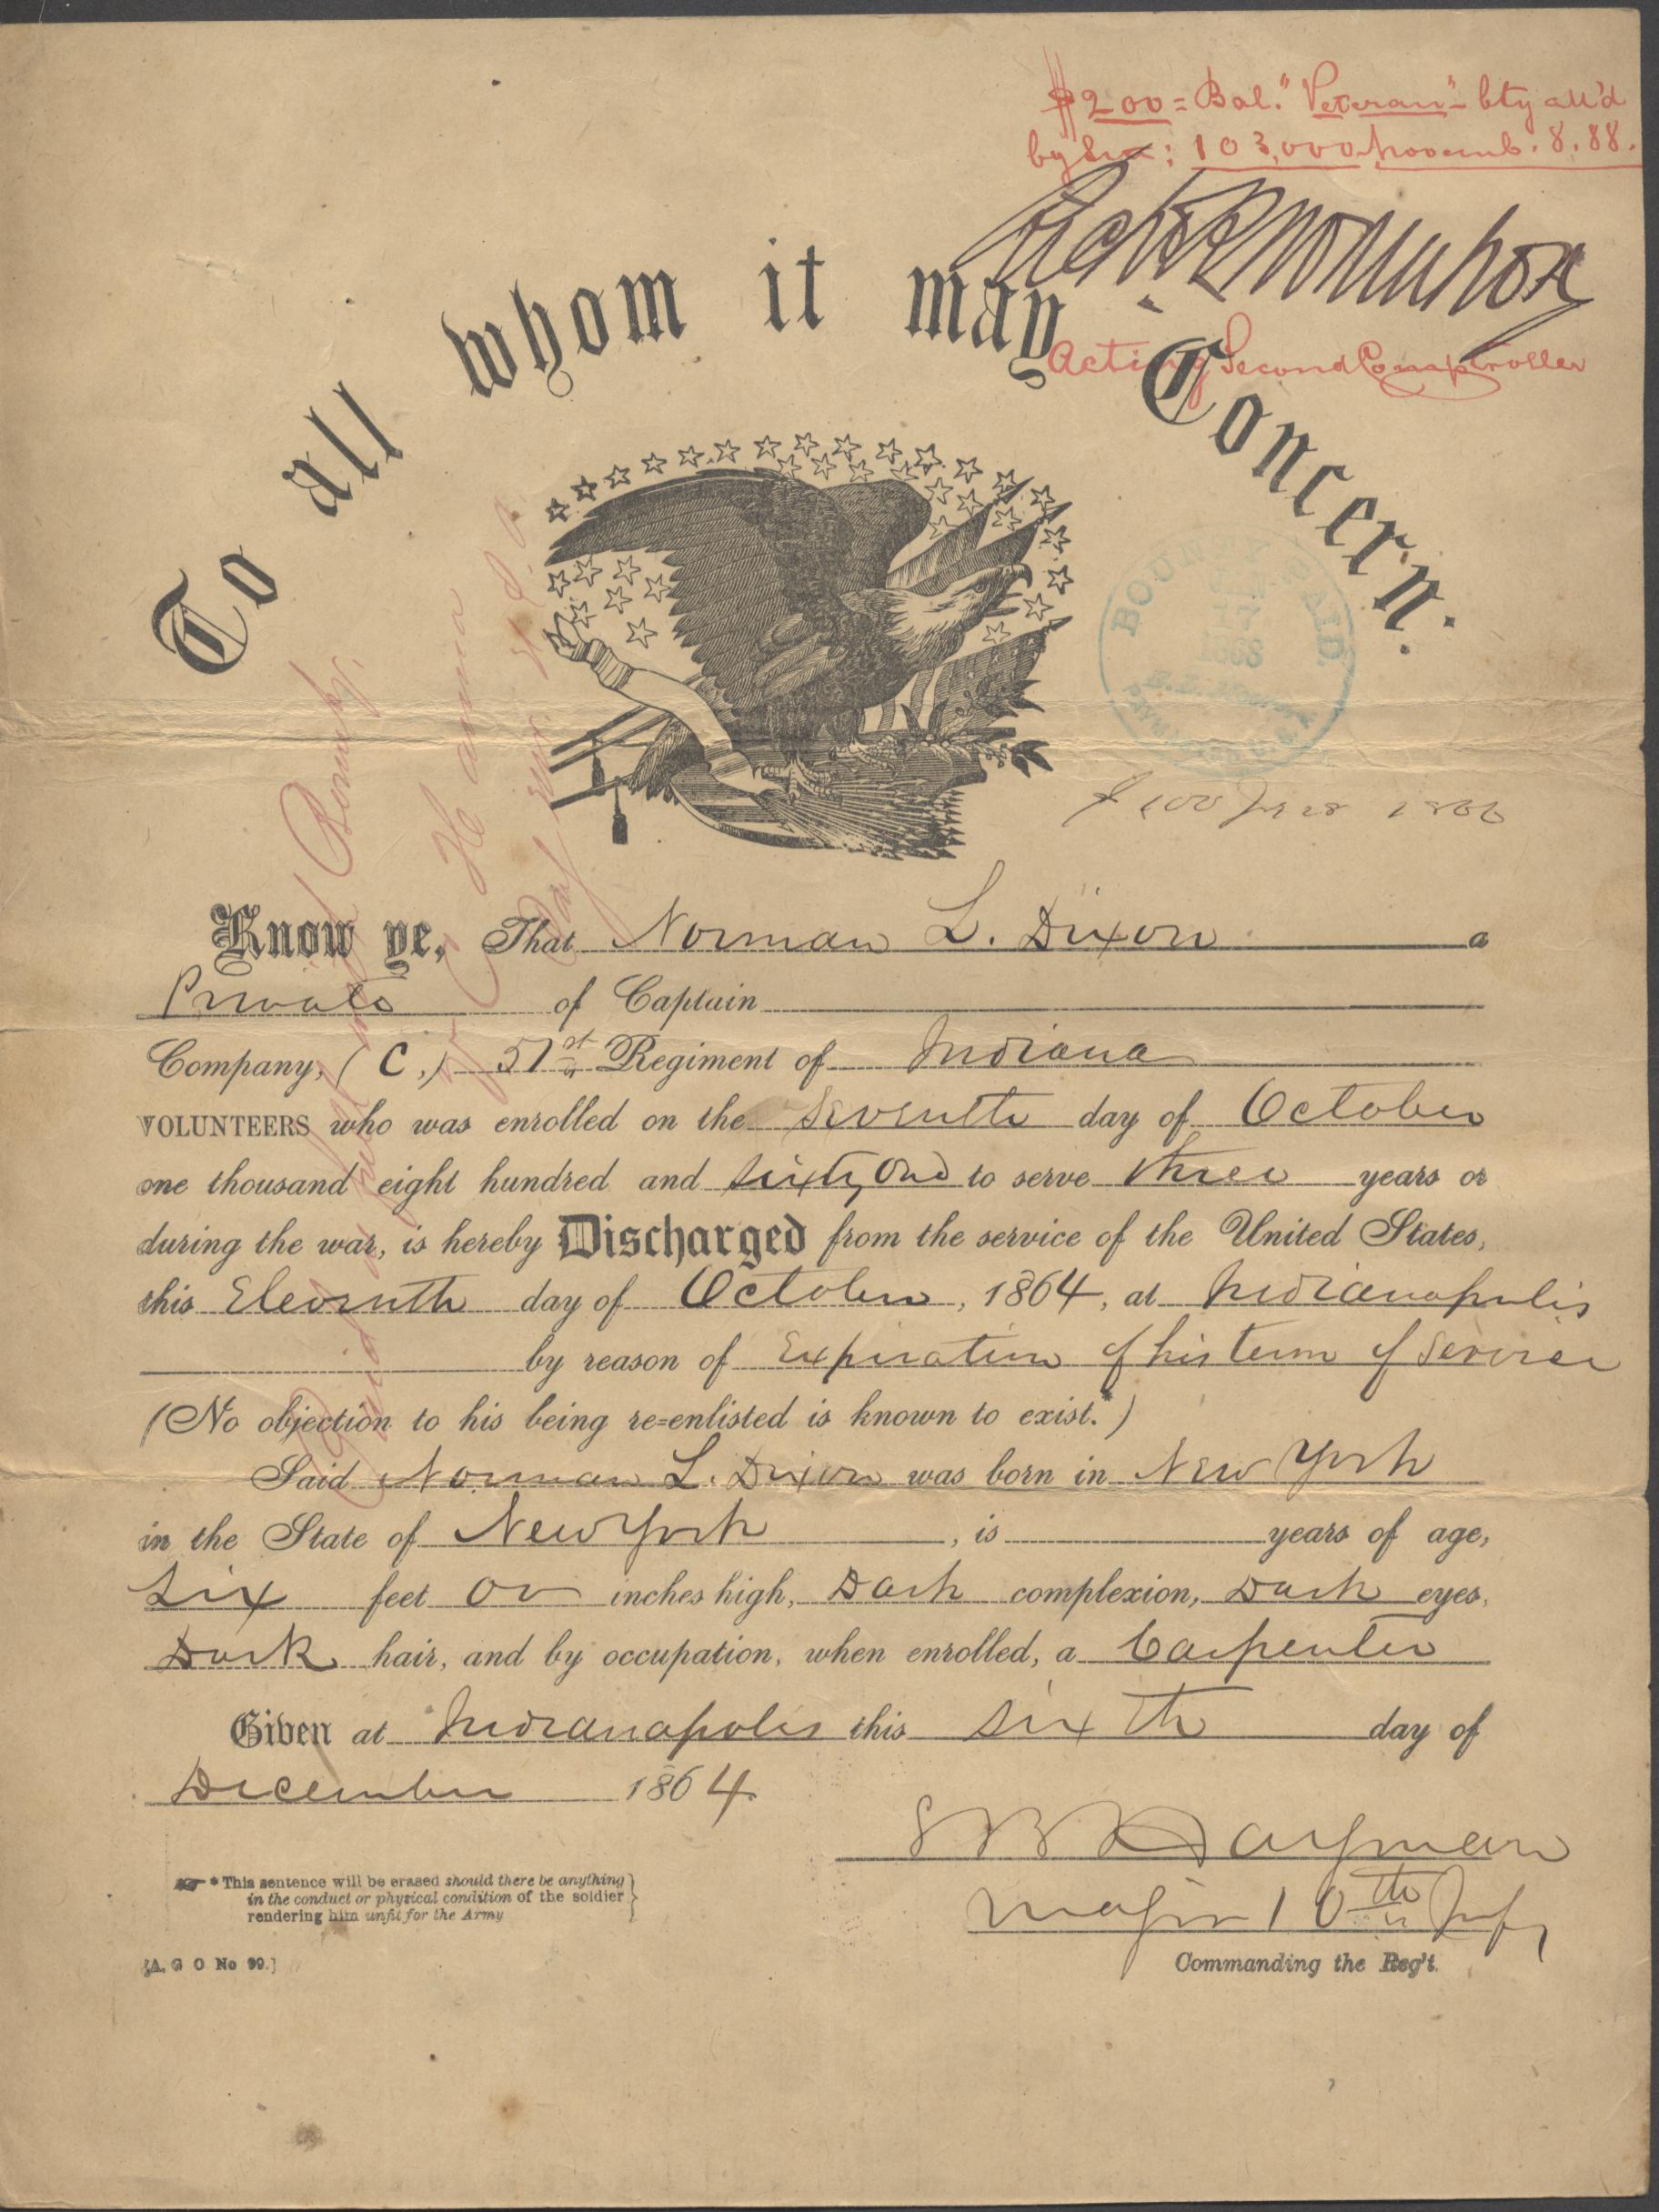 $200 = Bal. "Veteran" bty all'd
by : 103,000 Novemb. 8. 88.
Acting Second Comptroller
To all whom it may Concern.
BOUNTY PAID.
1868
1866
Know ye, That Norman L. Dixon a
Private of Captain
Company, (C,) 51st Regiment of Indiana
VOLUNTEERS who was enrolled on the Seventh day of October
one thousand eight hundred and Sixty One to serve three years or
during the war, is hereby Discharged from the service of the United States,
this Eleventh day of October, 1864, at Indianapolis
by reason of Expiration of his term of Service
(No objection to his being re-enlisted is known to exist.*)
Said Norman L. Dixon was born in New York
in the State of New York, is years of age,
Six feet 00 inches high, Dark complexion, Dark eyes,
Dark hair, and by occupation, when enrolled, a Carpenter
Given at Indianapolis this Sixth day of
December 1864.
*This sentence will be erased should there be anything
in the conduct or physical condition of the soldier
rendering him unfit for the Army
[A. G O No 99.]
Hayman
Major 10th Inf,
Commanding the Reg't.
Bounty.